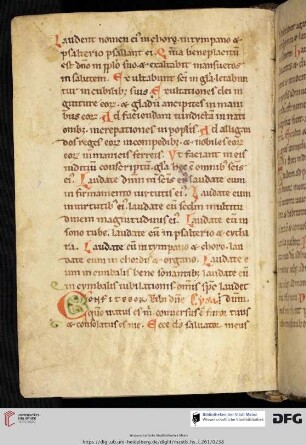 Laudent nomen ei' in choro. in tympano &
psalterio psallant ei. Quia beneplacitu
est dno in pplo suo & exaltabit mansuetos
in salutem. Exultabunt sci in gla letabun
tur in cubilib; suis. Exultationes dei in
gutture eor & gladii ancipites in manib
eor. Ad faciendam uindicta in nati
onib; increpationes in pop'lis. Ad alligan
dos reges eor in compedib; & nobiles eor
in manicis ferreis. Vt faciant in eis
iudiciu conscriptu gla hec e omnib; scis
ei'. Laudate dnm in scis ei' laudate eum
in firmamento uirtutis ei'. Laudate eum
in uirtutib' ei' laudate eu scdm multitu
dinem magnitudinis ei'. Laudate eu in
sono tube. laudate eu in psalterio & cytha
ra. Laudate eu in tympano & choro. lau
date eum in chordis & organo. Laudate e
um in cymbalis bene sonantib; laudate eu
in cymbalis iubilationis. omis sps laudet
Confitebor tibi dne dnm.
qm iratus es m conuersus e furor tuus
& consolatus es me. Ecce ds saluator meus
https://digi.ub.uni-heidelberg.de/diglit/mzstb_hs_I_261/0258
DFG